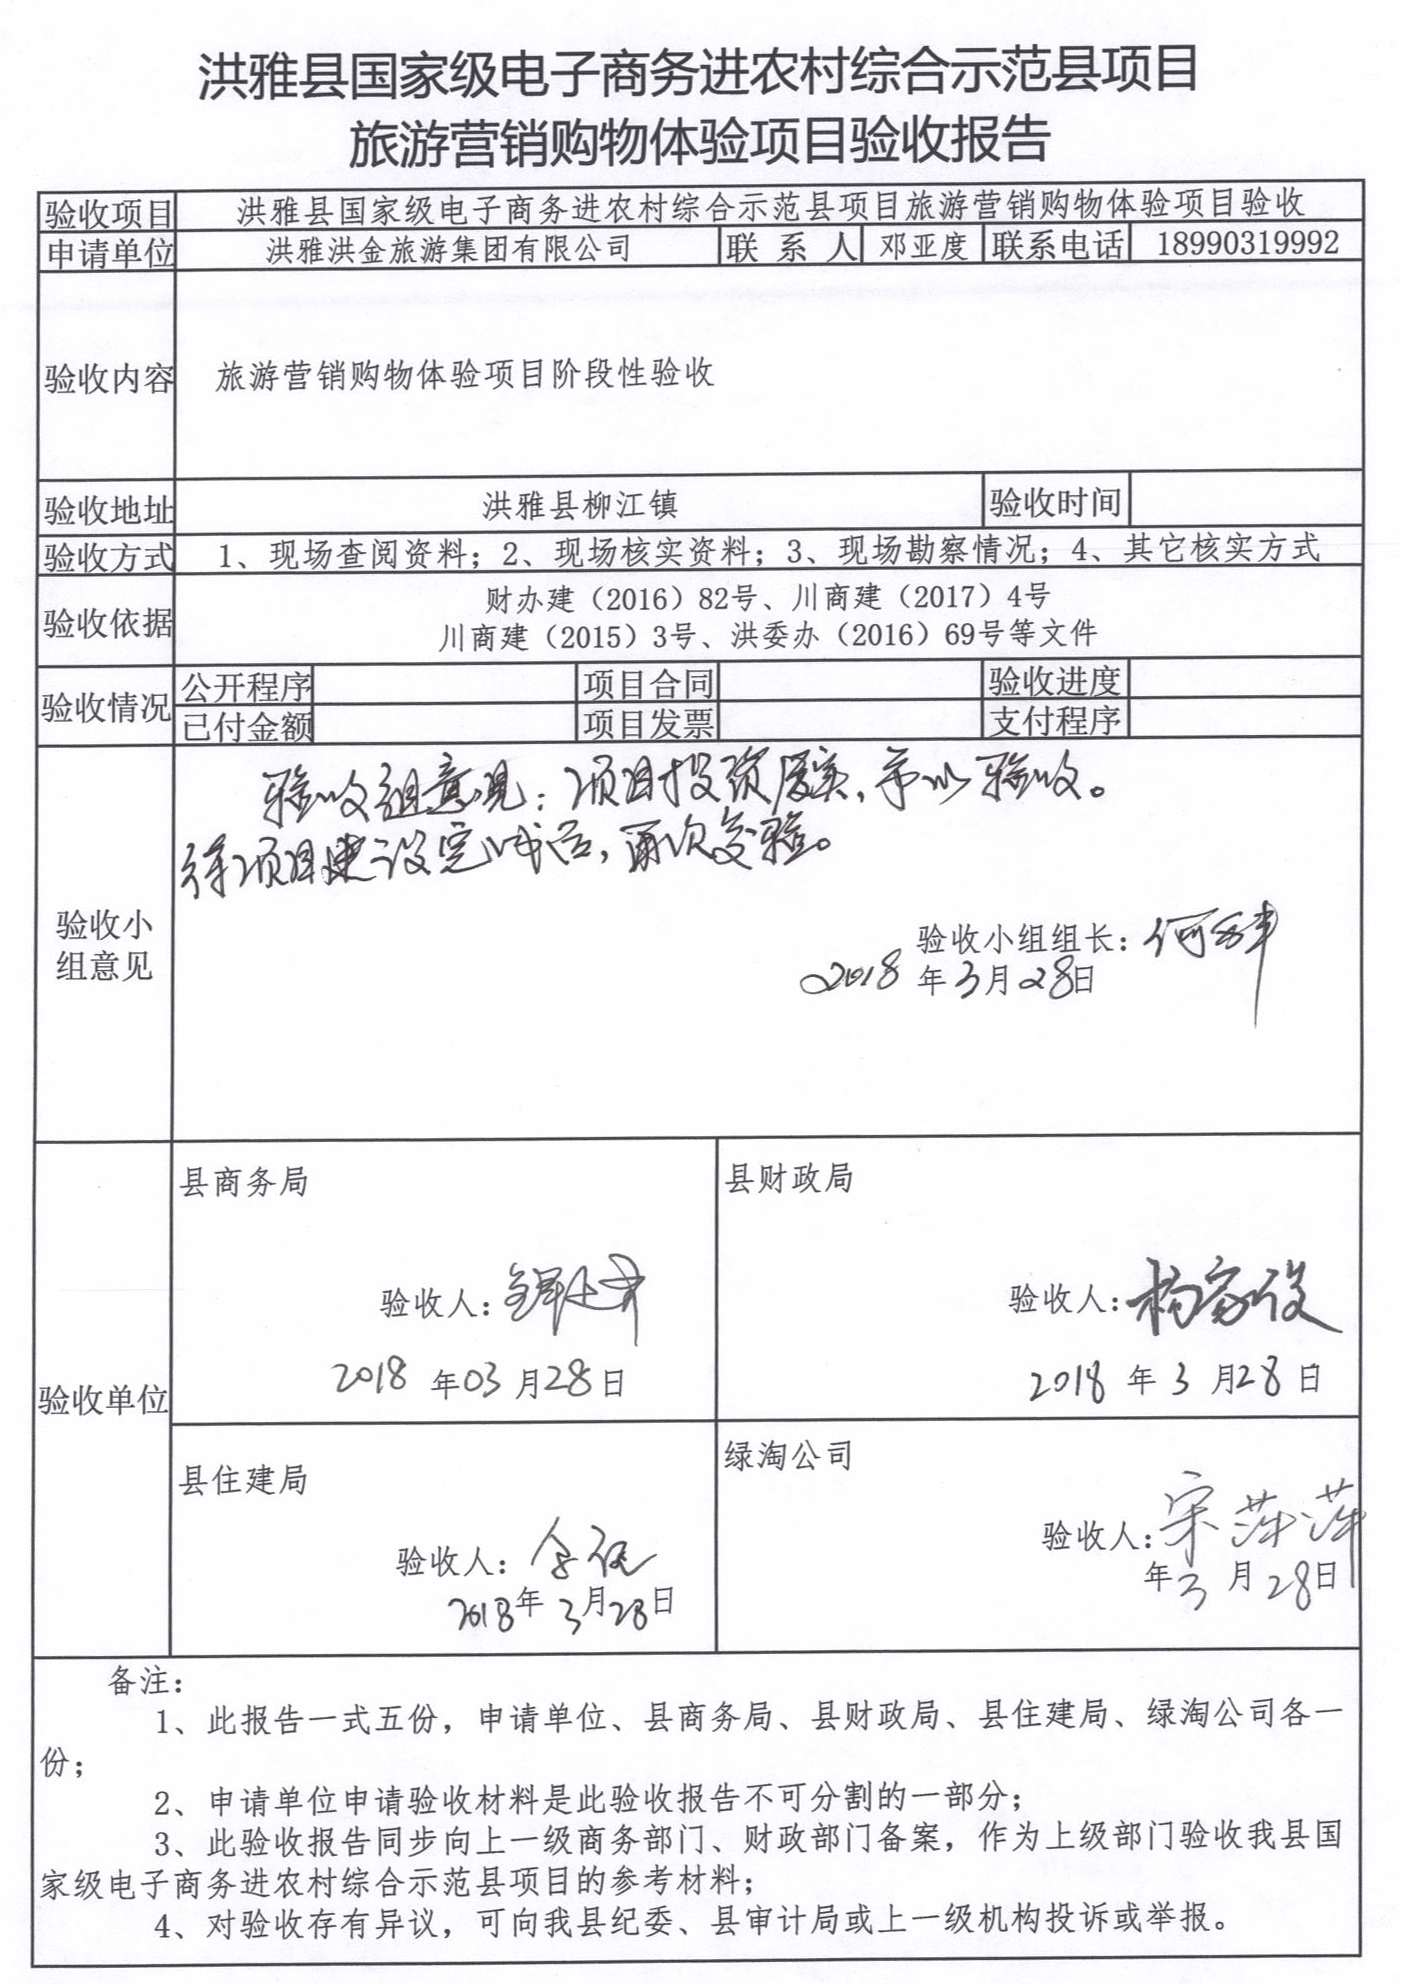 洪雅县国家级电子商务进农村综合示范县项目
旅游营销购物体验项目验收报告
验收项目 洪雅县国家级电子商务进农村综合示范县项目旅游营销购物体验项目验收
申请单位 洪雅洪金旅游集团有限公司 联系人 邓亚度 联系电话 18990319992
验收内容 旅游营销购物体验项目阶段性验收
验收地址 洪雅县柳江镇 验收时间
验收方式 1、现场查阅资料；2、现场核实资料；3、现场勘察情况；4、其它核实方式
验收依据 财办建（2016）82号、川商建（2017）4号
川商建（2015）3号、洪委办（2016）69号等文件
验收情况 公开程序 项目合同 验收进度
已付金额 项目发票 支付程序
验收组意见：项目投资属实，予以验收。
待项目建设完成后，再次交验。
验收小
组意见
验收小组组长：何
2018年3月28日
验收单位
县商务局
验收人：
2018年03月28日
县财政局
验收人：杨家俊
2018年3月28日
县住建局
验收人：
2018年3月28日
绿淘公司
验收人：宋萍萍
年3月28日
备注：
1、此报告一式五份，申请单位、县商务局、县财政局、县住建局、绿淘公司各一
份；
2、申请单位申请验收材料是此验收报告不可分割的一部分；
3、此验收报告同步向上一级商务部门、财政部门备案，作为上级部门验收我县国
家级电子商务进农村综合示范县项目的参考材料；
4、对验收存有异议，可向我县纪委、县审计局或上一级机构投诉或举报。